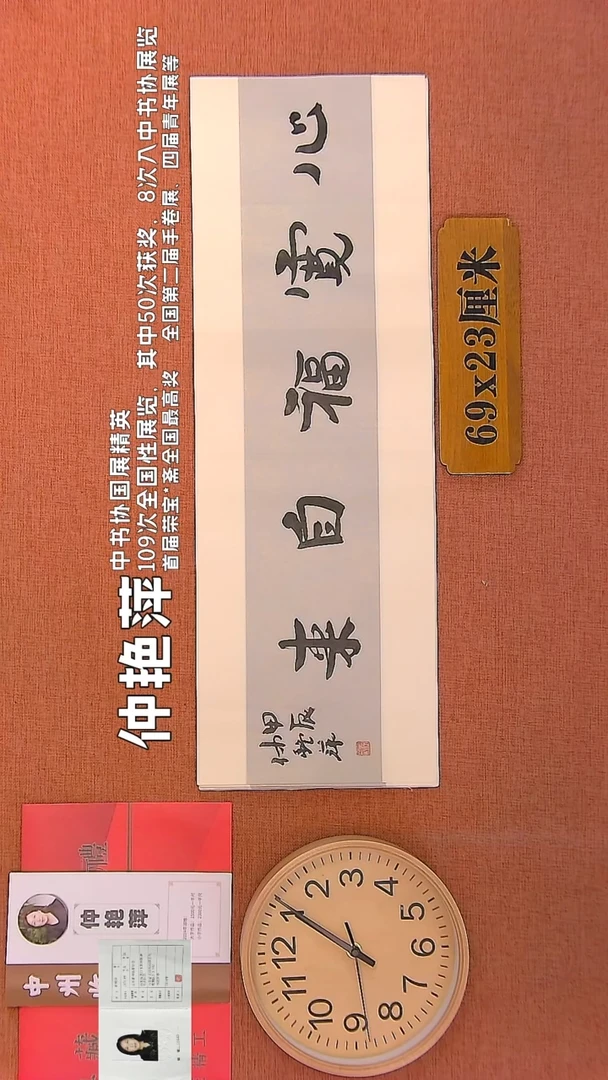 仲艳萍
中书协国展精英
109次全国性展览，其中50次获奖，8次入中书协展览
首届荣宝*斋全国最高奖 全国第二届手卷展、四届青年展等
心寬福自来
甲辰
仲艳萍
69x23厘米
仲艳萍
中州
藏
12
1
2
3
4
5
6
7
8
9
10
11